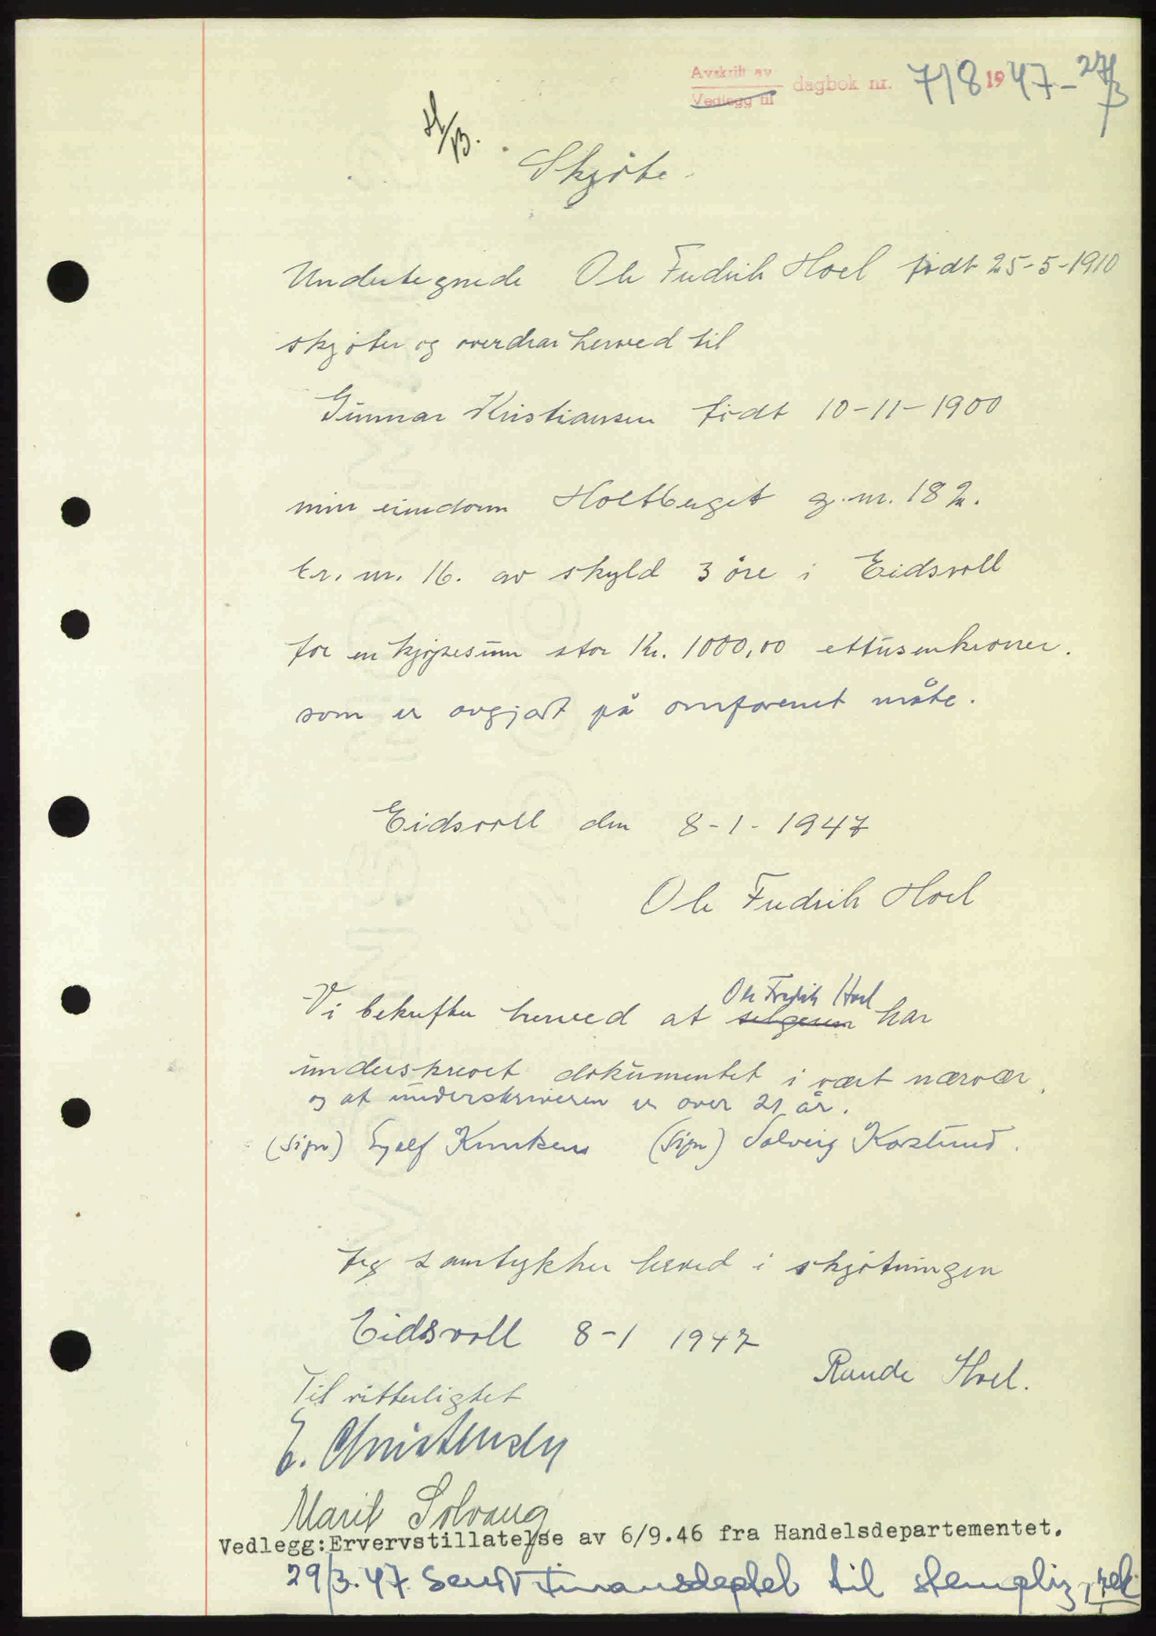 Avskrift av
Vedlegg til dagbok nr. 718 1947 - 27/3
Skjøte.
Undertegnede Ole Fredrik Hoel født 25-5-1910
skjøter og overdrar herved til
Gunnar Kristiansen født 10-11-1900
min eiendom Holtberget g.nr. 182.
br. nr. 16. av skyld 3 øre i Eidsvoll
for en kjøpesum stor Kr. 1000,00 ettusenkroner.
som er avgjort på omforenet måte.
Eidsvoll den 8-1-1947
Ole Fredrik Hoel
Ole Fredrik Hoel
Vi bekrefter herved at selgeren har
underskrevet dokumentet i vært nærvær,
og at underskriveren er over 21 år.
(Sign) Knutsen (Sign) Solveig
Jeg samtykker herved i skjøtningen
Eidsvoll 8-1 1947
Hoel.
Til vitterlighet
E. Christensen
Marit Solvang
Vedlegg: Ervervstillatelse av 6/9.46 fra Handelsdepartementet.
29/3.47. Sendt Finansdeptet til stempling, rek